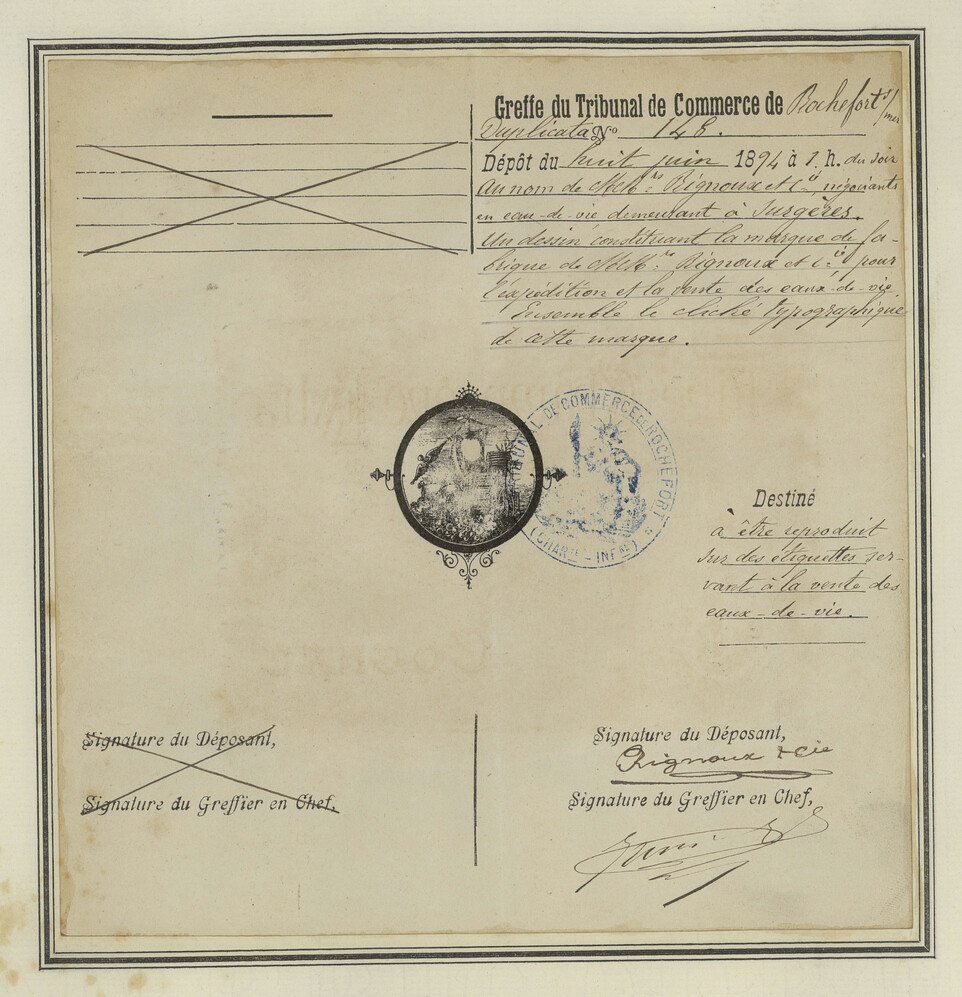 Greffe du Tribunal de Commerce de Rochefort s/mer
Duplicata No 148.
Dépôt du huit juin 1894 à 1. h. du soir
Au nom de MM.rs Rignoux et Cie négociants
en eau-de-vie demeurant à Surgères.
Un dessin constituant la marque de fa-
brique de MM.rs Rignoux et Cie pour
l'expédition et la vente des eaux-de-vie.
Ensemble le cliché typographique
de cette marque.
TRIBUNAL DE COMMERCE DE ROCHEFORT
(CHARte - INFre)
Destiné
à être reproduit
sur des étiquettes ser-
vant à la vente des
eaux-de-vie.
Signature du Déposant,
Signature du Greffier en Chef,
Signature du Déposant,
Rignoux & Cie
Signature du Greffier en Chef,